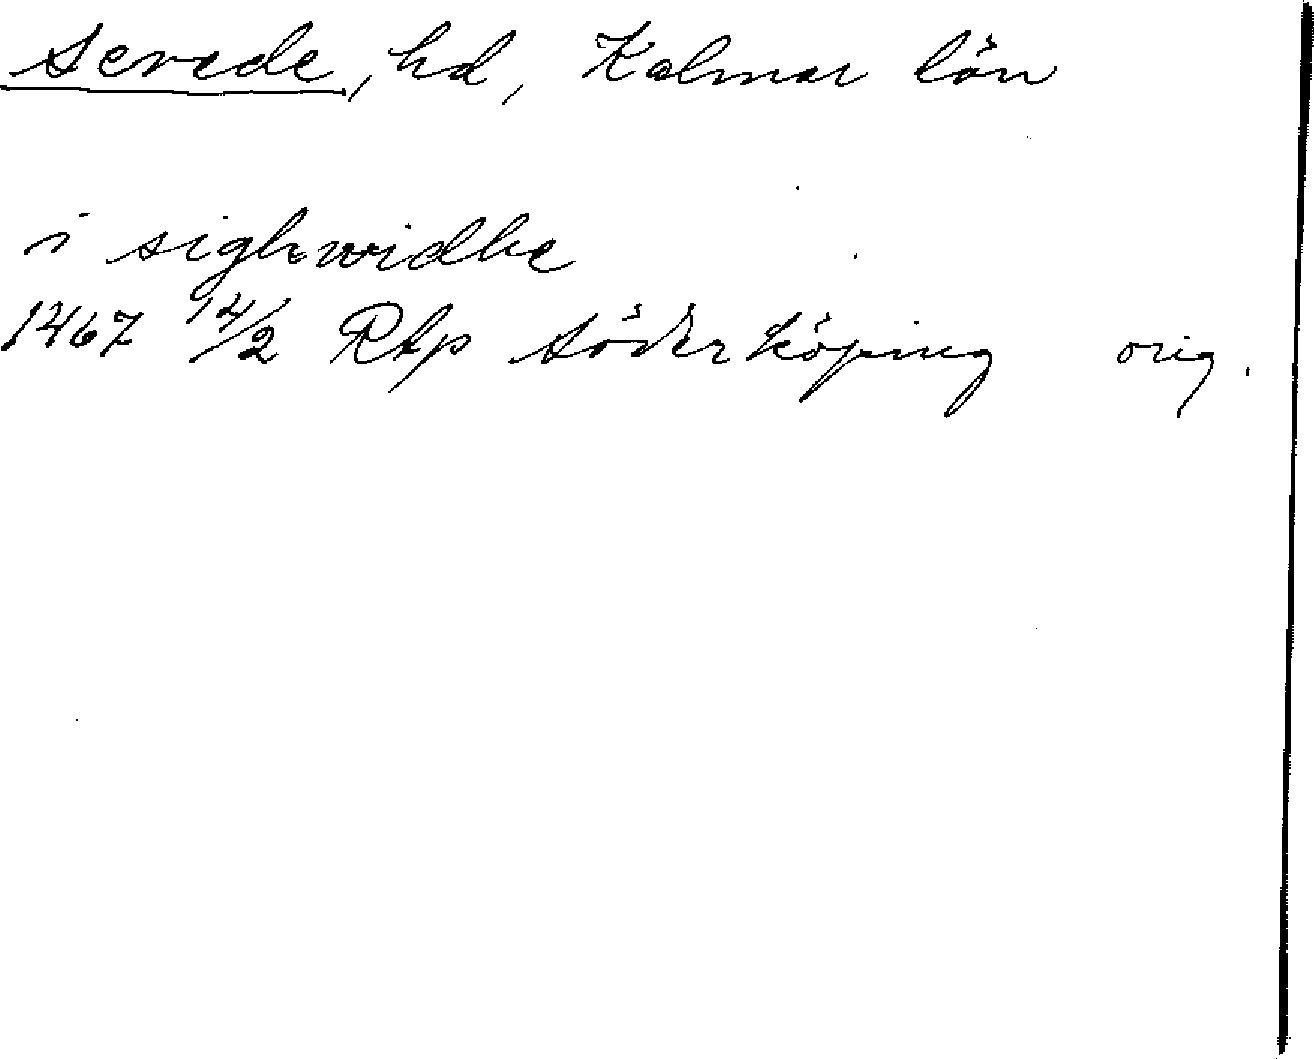 Sevede, hd, Kalmar län
i sighwidhe
1467 14/2 RAp Söderköping orig.